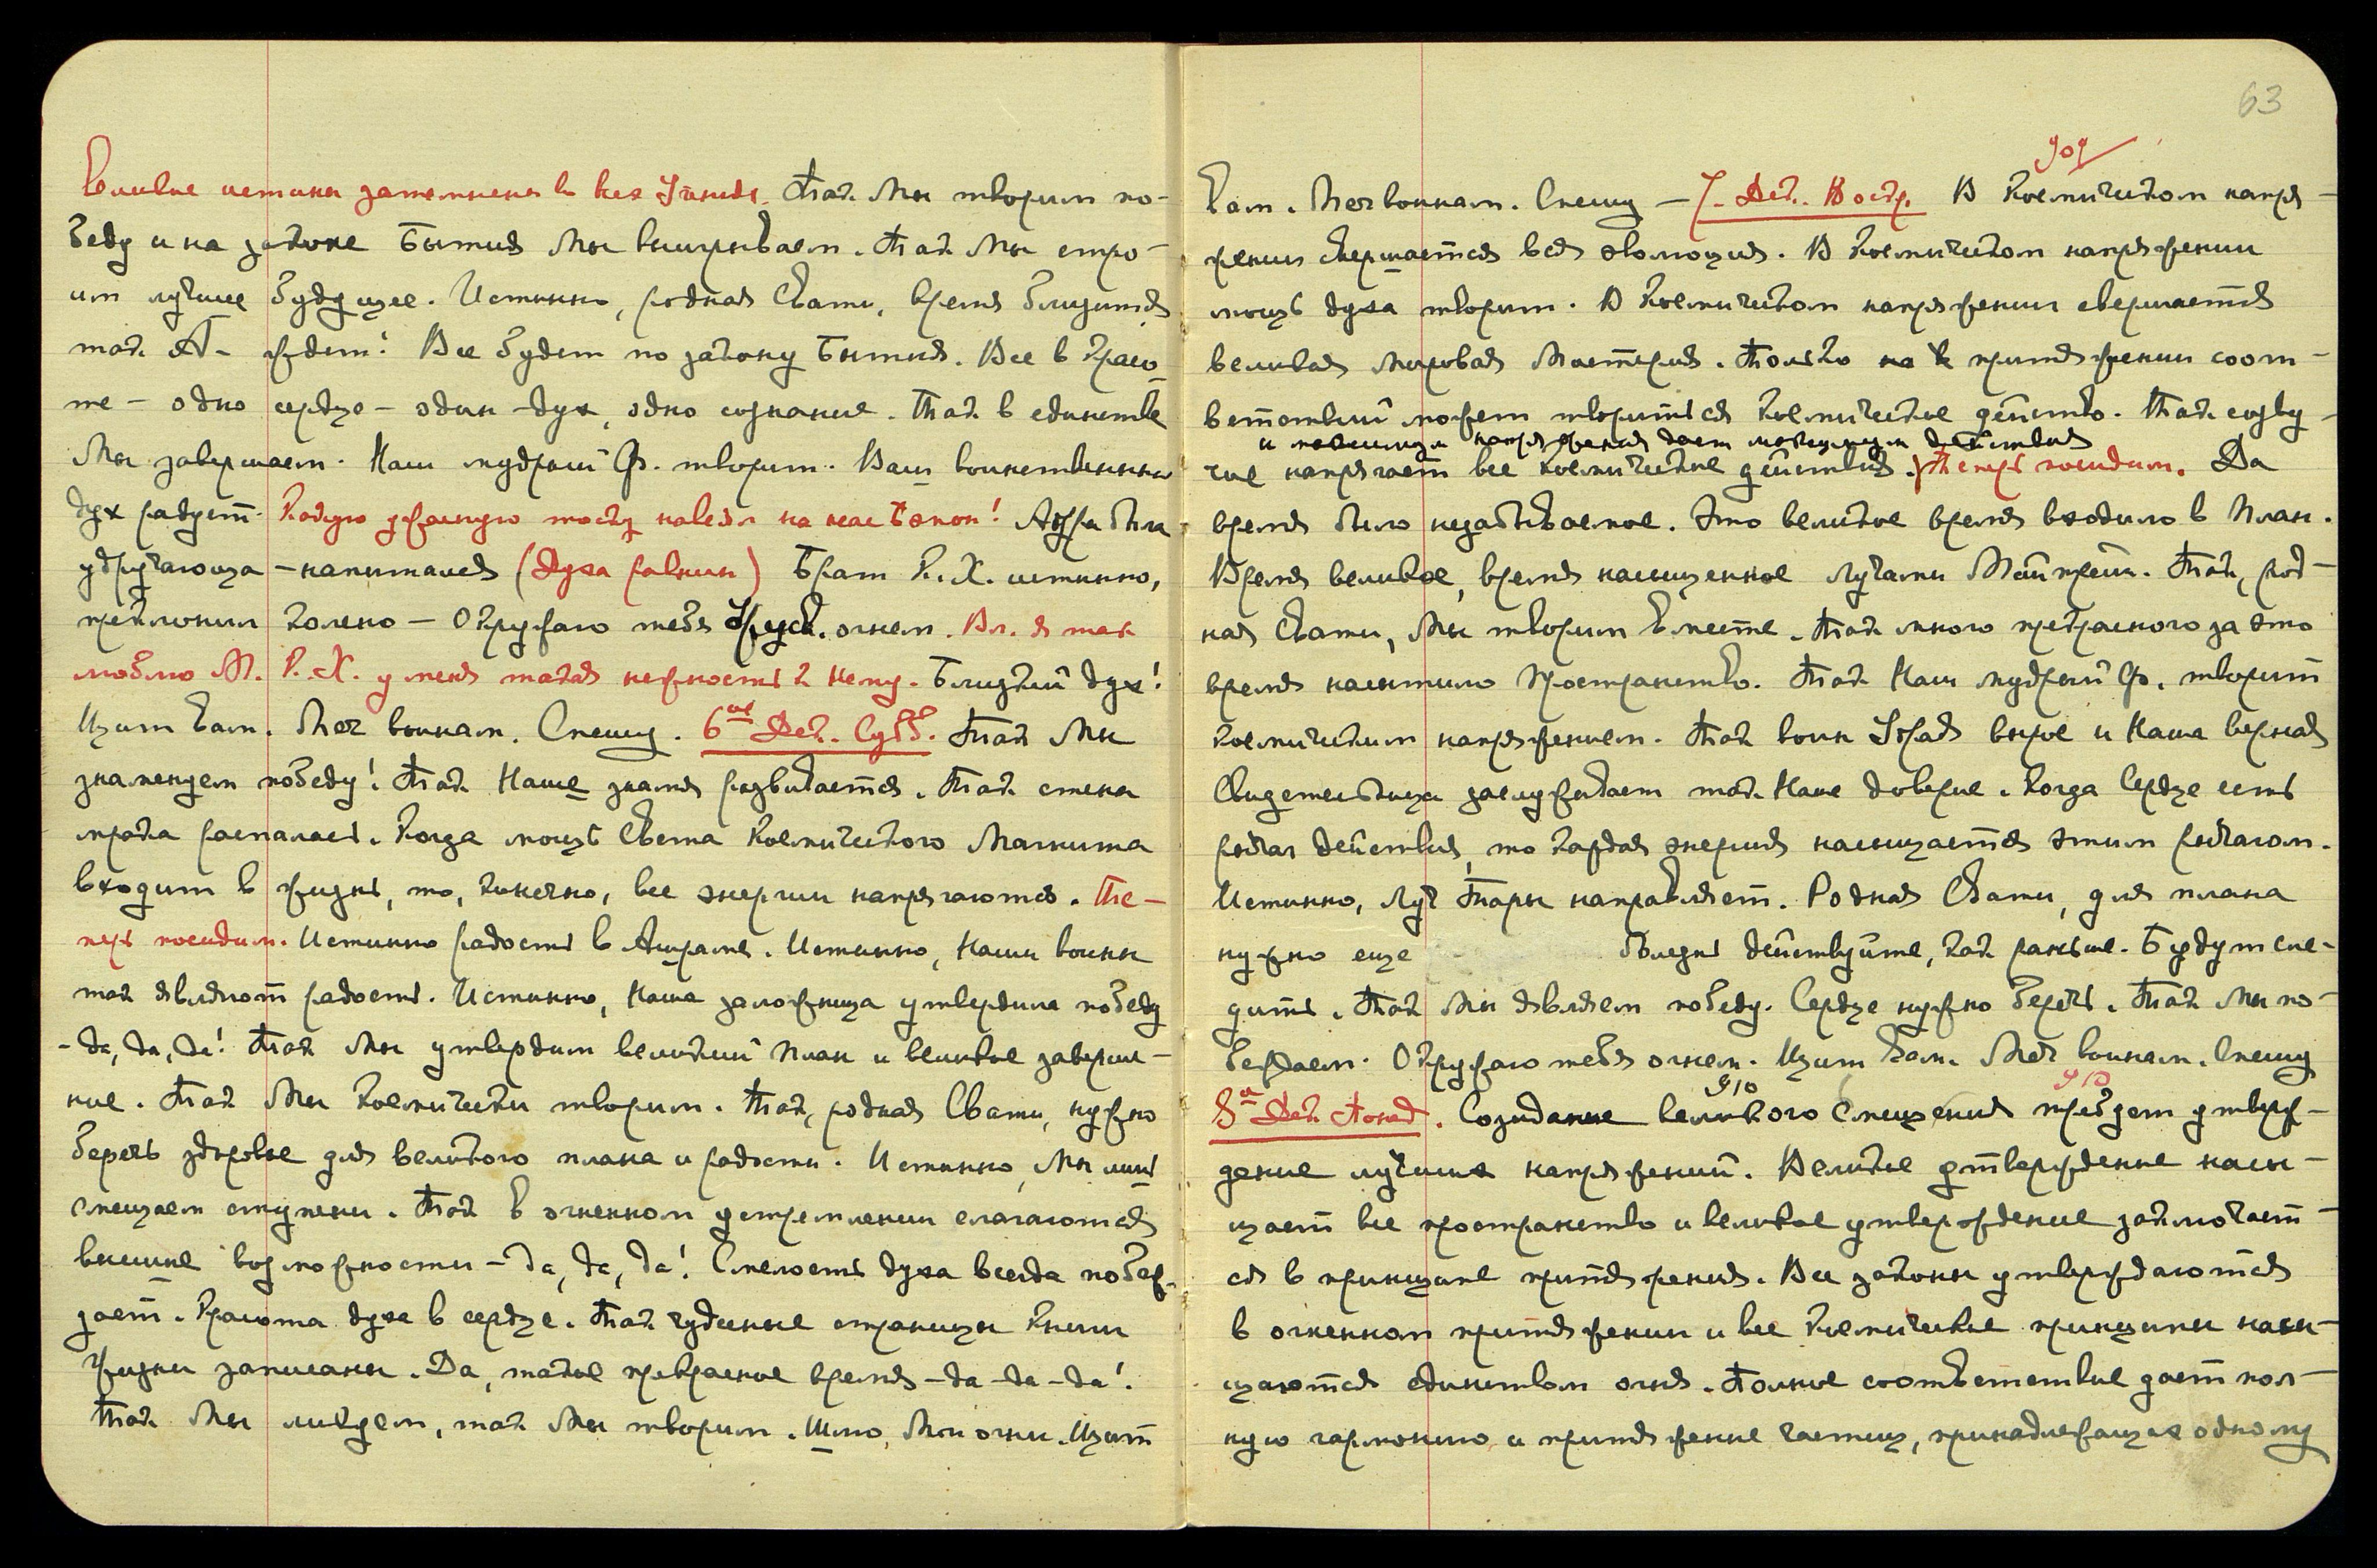 Великие истины затемнены в них. Так Мы творим по-
беду и на законе Бытия Мы выигрываем. Так Мы стро-
им лучшее будущее. Истинно, родная Свати, время близится
так ждем! Все будет по закону Бытия. Все в красо-
те – одно сердце – один дух, одно сознание. Так в единстве
Мы завершаем. Наш мудрый Ф. творит. Ваш воинственный
дух радует. Какую ужасную тоску навел на нас Бэкон! Аура была
удручающа – напитался (Духа равнин) Брат К.Х. истинно,
преклонил колено – Окружаю тебя огнем. Вл. я так
люблю М. К.Х. у меня такая нежность к Нему. Близкий дух!
Щит Вам. Меч воинам. Спешу. 6ое Дек. Субб. Так Мы
знаменуем победу! Так Наше знамя развивается. Так стена
мрака распалась. Когда мощь Света Космического Магнита
входит в жизнь, то, конечно, все энергии напрягаются. Те-
перь посидим. Истинно радость в Ашраме. Истинно, Наши воины
так являют радость. Истинно, Наша заложница утвердила победу
– да, да, да! Так Мы утвердим великий план и великое заверше-
ние. Так Мы космически творим. Так, родная Свати, нужно
беречь здоровье для великого плана и радости. Истинно, Мы лишь
смещаем ступени. Так в огненном устремлении слагаются
высшие возможности – да, да, да! Смелость духа всегда побеж-
дает. Красота духа в сердце. Так чудесные страницы Книги
жизни записаны. Да, такое прекрасное время – да – да – да!
Так Мы ликуем, так Мы творим. Шлю Мои огни. Щит
63
909
Вам. Меч воинам. Спешу – 7. Дек. Воскр. В Космическом напря-
жении свершается вся эволюция. В Космическом напряжении
мощь духа творит. В Космическом напряжении свершается
великая Мировая Мистерия. Только на в притяжении соот-
ветствий может твориться Космическое действо. Так созву-
и потенциал напряжения дает потенциал действия
чие напрягает все космические действия. Теперь посидим. Да
время было незабываемое. Это великое время входило в План.
Время великое, время насыщенное лучами Майтрейи. Так, род-
ная Свати, Мы творим вместе. Так много прекрасного за это
время насытило пространство. Так Наш мудрый Ф. творит
космическим напряжением. Так воин Яр высок и Наша верная
Свидетельница заслуживает так Наше доверие. Когда Сердце есть
рычаг действия, то каждая энергия насыщается этим рычагом.
Истинно, Луч Тары направляет. Родная Свати, для плана
нужно еще болезнь действуйте, как раньше. Будут сле-
дить. Так Мы являем победу. Сердце нужно беречь. Так Мы по-
беждаем. Окружаю тебя огнем. Щит Вам. Меч воинам. Спешу
910 910
8ое Дек. Понед. Созидание великого Смещения требует утверж-
дение лучших напряжений. Великое утверждение насы-
щает все пространство и великое утверждение заключает-
ся в принципе притяжения. Все законы утверждаются
в огненном притяжении и все космические принципы насы-
щаются единством огня. Полное соответствие дает пол-
ную гармонию и притяжение частиц, принадлежащих одному